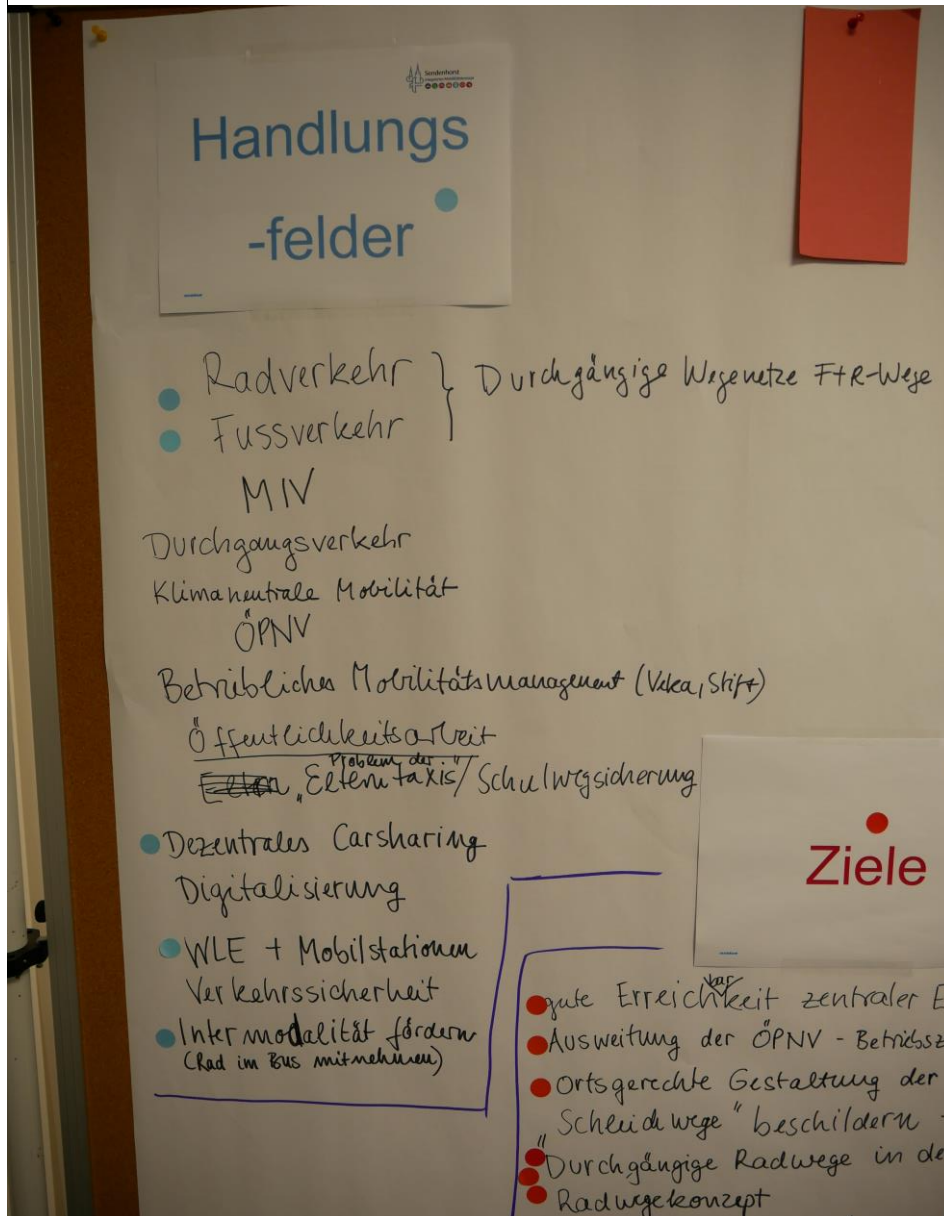 Sendenhorst
Handlungs
-felder
Radverkehr } Durchgängige Wegenetze F+R-Wege
Fussverkehr
MIV
Durchgangsverkehr
Klimaneutrale Mobilität
ÖPNV
Betriebliches Mobilitätsmanagement (Veka, Stift)
Öffentlichkeitsarbeit
Problem der
"Elterntaxis"/Schulwegsicherung
Dezentrales Carsharing
Digitalisierung
WLE + Mobilstationen
Verkehrssicherheit
Intermodalität fördern
(Rad im Bus mitnehmen)
Ziele
gute Erreichbarkeit zentraler E
Ausweitung der ÖPNV - Betriebsz
Ortsgerechte Gestaltung der
"Schleichwege" beschildern
Durchgängige Radwege in de
Radwegekonzept